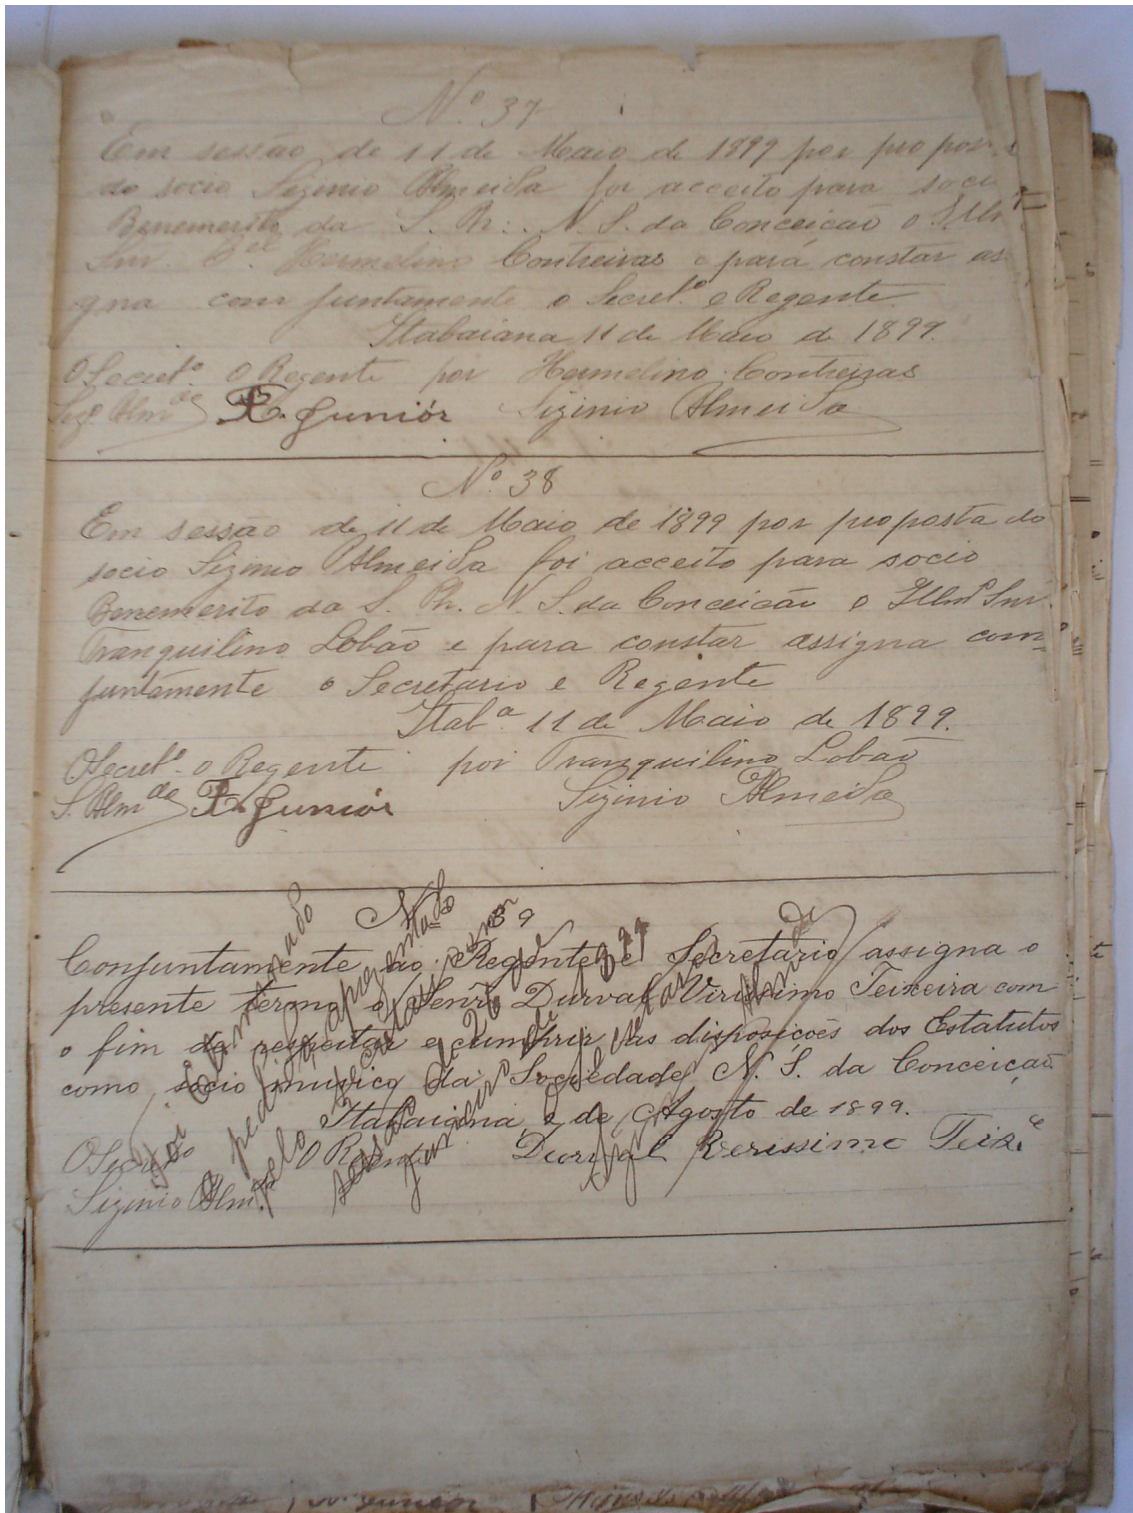 Nº. 37
Em sessão de 11 de Maio de 1899 por propos
do socio Sizinio Almeida foi acceito para soci
Benemerito da S. Ph. N. S. da Conceição o Illm
Snr. Cel. Hermelino Contreiras e para constar as
gna com juntamente o Secretº e Regente
Itabaiana 11 de Maio de 1899.
O Secretº. O Regente por Hermelino Contreiras
Almde F. Juniór Sizinio Almeida
Nº. 38
Em sessão de 11 de Maio de 1899 por proposta do
socio Sizinio Almeida foi acceito para socio
Benemerito da S. Ph. N. S. da Conceição o Illmº Snr.
Tranquilino Lobão e para constar assigna com
juntamente o Secretario e Regente
Itabª 11 de Maio de 1899.
O Secretº. o Regente por Tranquilino Lobão
S. Almde F. Juniór Sizinio Almeida
Nº 39
Conjuntamente ao Regente e Secretario assigna o
presente termo o Senr. Durval Virissimo Teixeira com
o fim de respeitar e cumprir as disposições dos Estatutos
como socio musico da Sociedade N. S. da Conceição
Itabaiana 2 de Agosto de 1899.
O Secretº O Regente Durval Verissimo Teixª
Sizinio Alm.da
Foi eliminado
a pedido apresentado
pelo
sessão de 26 de